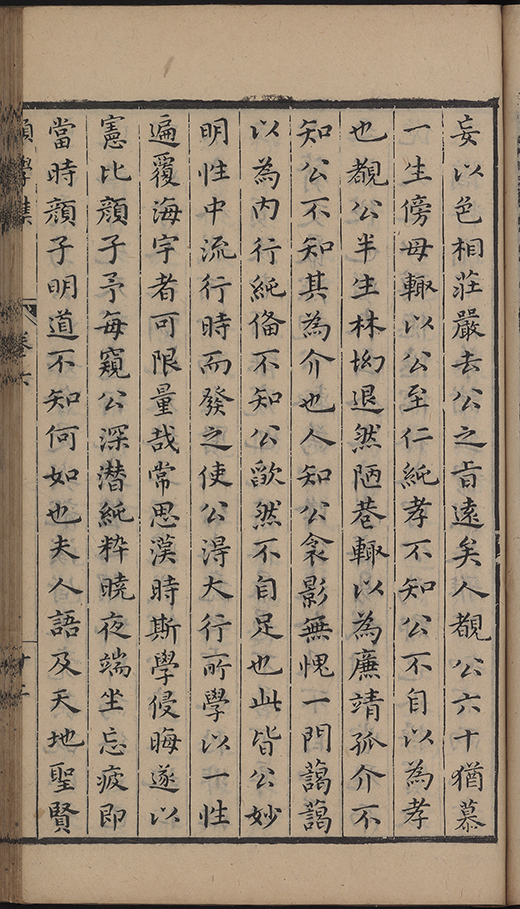 妄以色相莊嚴去公之旨遠矣人覩公六十猶慕
一生傍母輙以公至仁純孝不知公不自以為孝
也覩公半生林坳退然陋巷輙以為廉靖孤介不
知公不知其為介也人知公衾影無愧一門藹藹
以為內行純備不知公欿然不自足也此皆公妙
明性中流行時而發之使公得大行所學以一性
遍覆海宇者可限量哉常思漢時斯學侵晦遂以
憲比顏子予每窺公深潛純粹曉夜端坐忘疲即
當時顏子明道不知何如也夫人語及天地聖賢
願學集 卷六